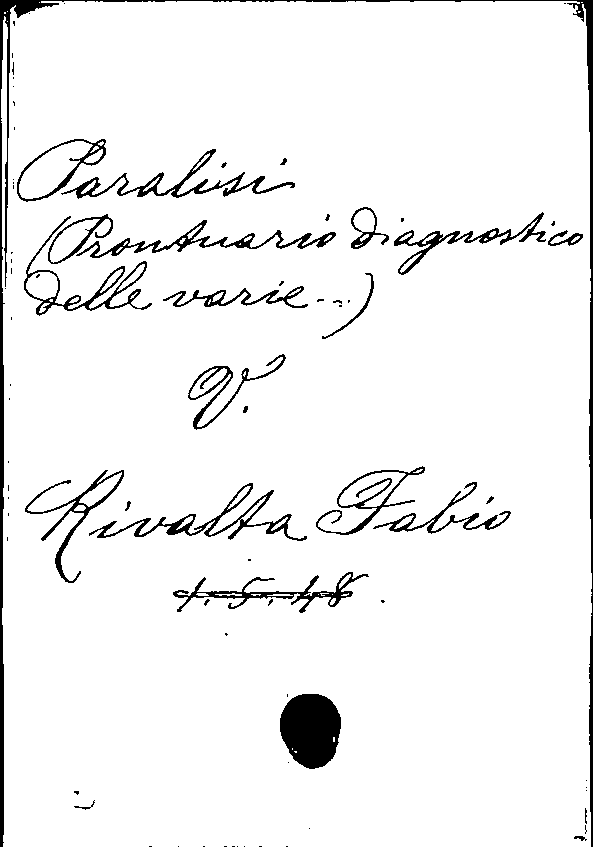 Paralisi
(Prontuario diagnostico
delle varie...)
V.
Rivalta Fabio
1.5.48.